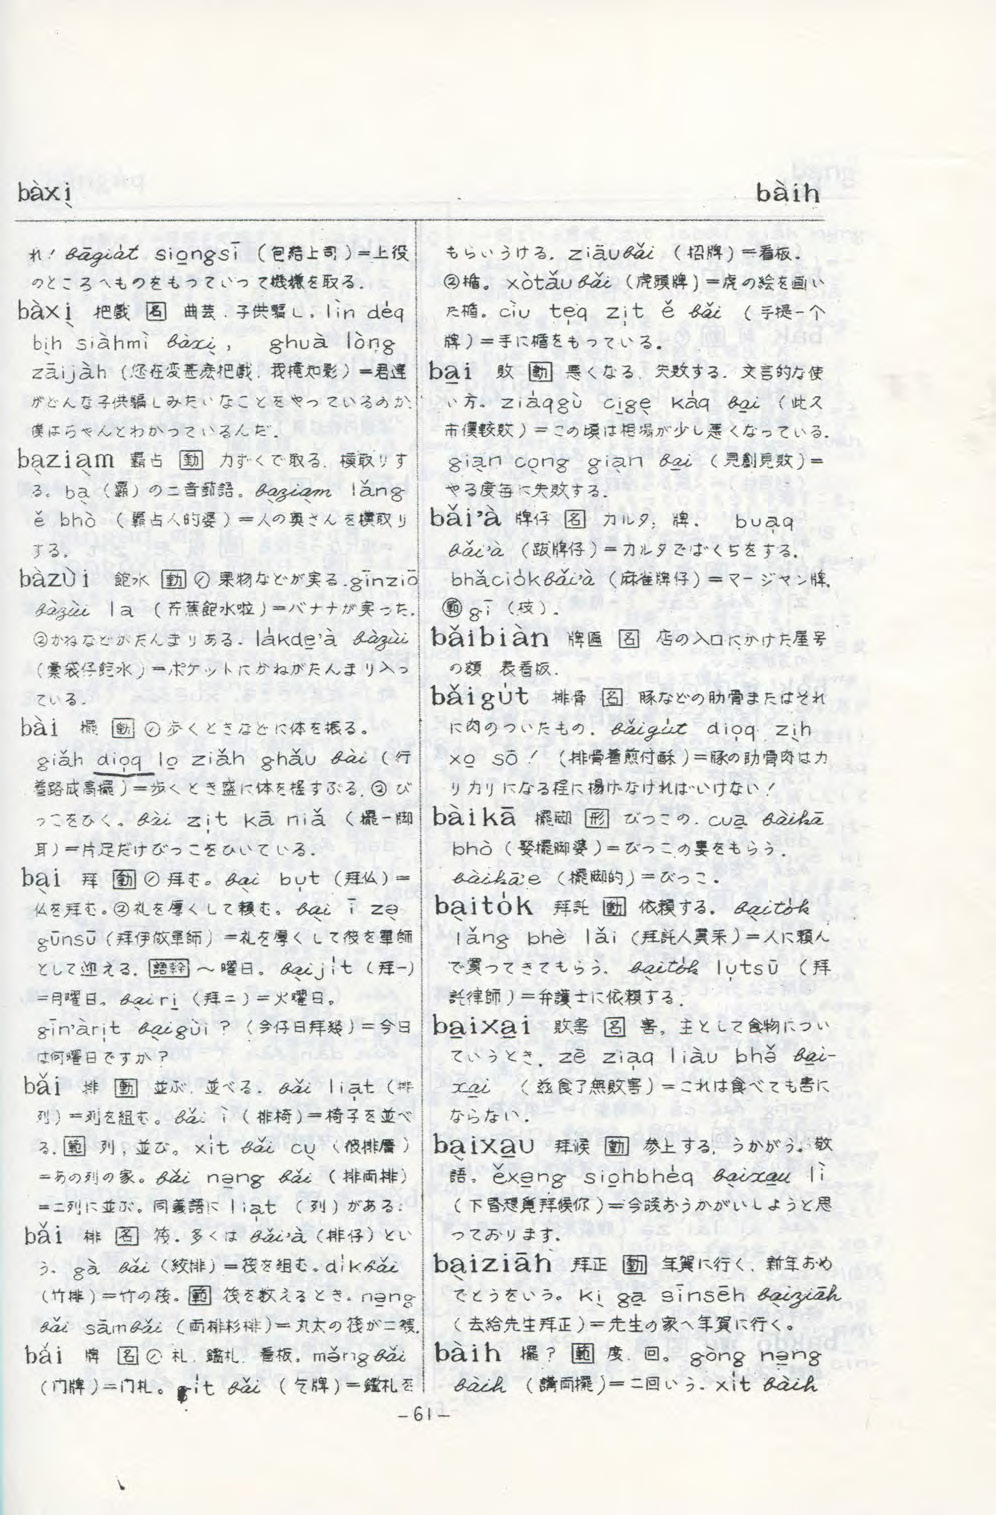 bàxị
bàih
れ! bāgiát siọngsī (包結上司)=上役
のところへものをもっていって機嫌を取る.
bàxị 把戲 [名] 曲芸. 子供騙し. lìn déq
bịh siàhmì bàxị, ghuà lòng
zāijàh (恁在変甚麽把戲, 我掩知影)=君達
がどんな子供騙しみたいなことをやっているのか,
僕はちゃんとわかっているんだ.
bạziạm 覇占 [動] 力ずくで取る. 横取りす
る. bạ (覇) の二音節語. bạziạm lǎng
ě bhò (覇占人的婆)=人の奥さんを横取り
する.
bàzùi 飽水 [動] ① 果物などが実る. gīnziō
bàzùi la (芹蕉飽水啦)=バナナが実った.
②かねなどがたんまりある. lákde'à bàzùi
(橐袋仔飽水)=ポケットにかねがたんまり入っ
ている.
bài 擺 [動] ① 歩くときなどに体を振る。
giǎh diọq lọ ziǎh ghǎu bài (行
着路成高擺)=歩くとき盛に体を揺すぶる. ② び
っこをひく。bài zịt kā niǎ (擺一脚
耳)=片足だけびっこをひいている.
bại 拜 [動] ① 拝む。bại bụt (拜仏)=
仏を拝む。②礼を厚くして頼む。bại ī zạ
gūnsū (拜伊做軍師)=礼を厚くして彼を軍師
として迎える. [語幹] ~曜日。bại jịt (拜一)
=月曜日。bại rị (拜二)=火曜日。
gīn'àrịt bạigùi? (今仔日拜幾)=今日
は何曜日ですか?
bǎi 排 [動] 並ぶ. 並べる. bǎi liạt (排
列)=列を組む。bǎi ì (排椅)=椅子を並べ
る. [範] 列, 並び。xit bǎi cụ (彼排厝)
=あの列の家。bǎi nạng bǎi (排両排)
=二列に並ぶ。同義語に liạt (列) がある.
bǎi 排 [名] 筏. 多くは bǎi'à (排仔) とい
う. gà bǎi (絞排)=筏を組む. dikbǎi
(竹排)=竹の筏。[範] 筏を数えるとき。nạng
bǎi sāmbǎi (両排杉排)=丸太の筏が二艘.
bǎi 牌 [名] ① 札. 鑑札. 看板. mǎngbǎi
(门牌)=门札。 git bǎi (乞牌)=鑑札を
もらいうける. ziāubǎi (招牌)=看板.
②楯。xòtǎubǎi (虎頭牌)=虎の絵を画い
た楯. cìu tẹq zịt ě bǎi (手提一个
牌)=手に楯をもっている.
bại 敗 [動] 悪くなる. 失敗する. 文言的な使
い方. ziáqgù cịgẹ káq bại (此久
市價較敗)=この頃は相場が少し悪くなっている.
giạn cọng giạn bại (見創見敗)=
やる度毎に失敗する.
bǎi'à 牌仔 [名] カルタ; 牌. buạq
bǎi'à (跋牌仔)=カルタでばくちをする.
bhǎciókbǎi'à (麻雀牌仔)=マージャン牌.
[範] gī (枝).
bǎibiàn 牌匾 [名] 店の入口にかけた屋号
の額 表看板.
bǎigút 排骨 [名] 豚などの肋骨またはそれ
に肉のついたもの. bǎigút diọq zịh
xọ sō! (排骨着煎付酥)=豚の肋骨肉はカ
リカリになる程に揚げなければいけない!
bàikā 擺脚 [形] びっこの. cuạ bàikā
bhò (娶擺脚婆)=びっこの妻をもらう.
bàikā'e (擺脚的)=びっこ.
bạitók 拜託 [動] 依頼する. bạitók
lǎng bhè lǎi (拜託人買来)=人に頼ん
で買ってきてもらう. bạitók lụtsū (拜
託律師)=弁護士に依頼する.
bạixại 敗害 [名] 害。主として食物につい
ていうとき. zē ziạq liàu bhǒ bại-
xại (茲食了無敗害)=これは食べても害に
ならない.
bạixạu 拜候 [動] 参上する. うかがう. 敬
語。ěxạng siọhbhéq bạixạu lì
(下昏想覓拜候你)=今晩おうかがいしようと思
っております.
bạiziāh 拜正 [動] 年賀に行く. 新年おめ
でとうをいう。kị gạ sīnsēh bạiziāh
(去給先生拜正)=先生の家へ年賀に行く。
bàih 擺? [範] 度. 回。gòng nạng
bàih (講両擺)=二回いう. xit bàih
-61-